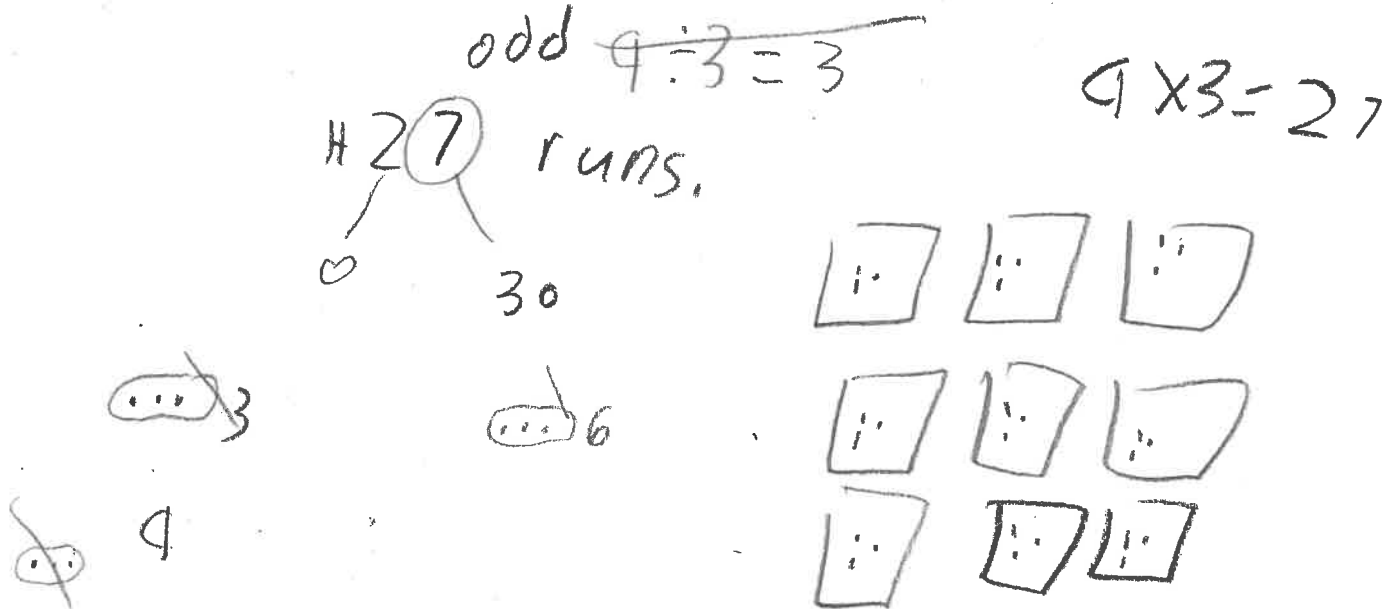 odd 9÷3=3
9×3=27
#27 runs.
30
3
6
9